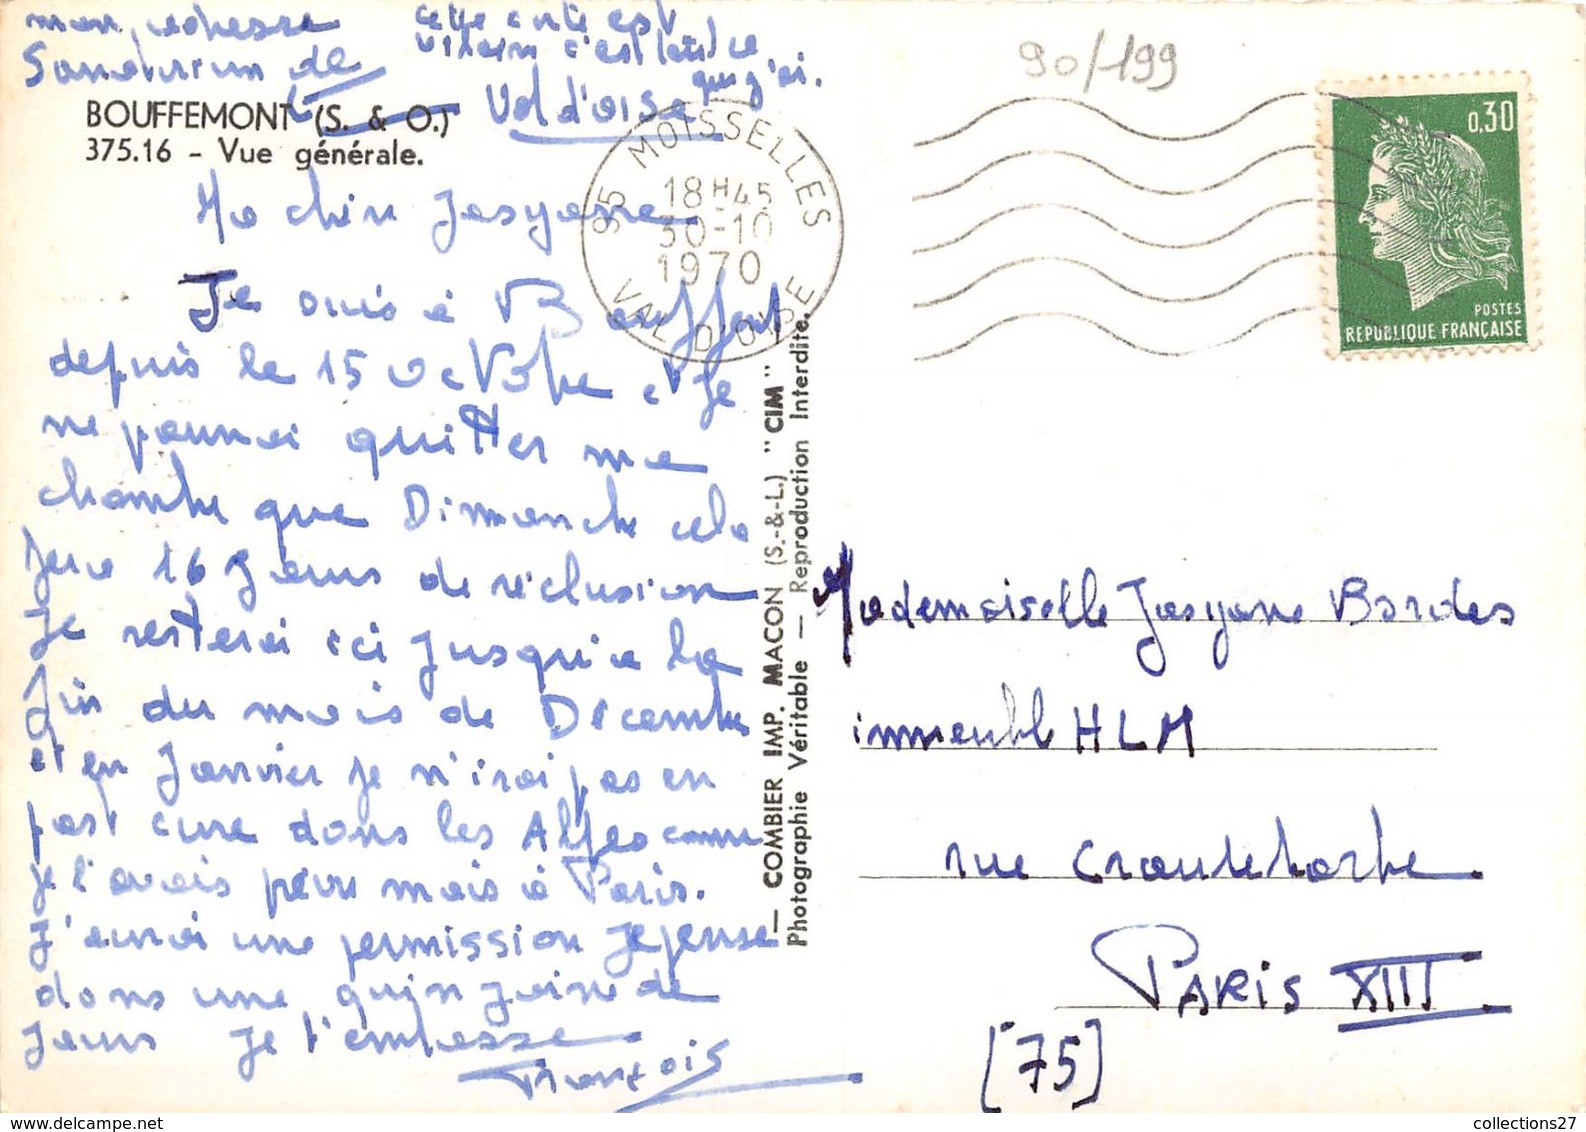 mon adresse
Sanatorium de
cette carte est
vilaine c'est
que j'ai.
BOUFFEMONT (S. & O.)
Val d'oise
375.16 - Vue générale.
95 MOISSELLES
18H45
30-10
1970
VAL D'OISE
90/199
0,30
POSTES
REPUBLIQUE FRANÇAISE
Ma chère Josyane
Je suis à Bouffemont
depuis le 15 octobre et Je
ne pourrai quitter ma
chambre que Dimanche cela
fera 16 Jours de réclusion
Je resterai ici Jusqu'a la
fin du mois de Décembre
et en Janvier Je n'irai pas en
post cure dans les Alpes comme
Je l'avais prévu mais à Paris.
J'aurai une permission Je pense
dans une quinzaine de
Jours Je t'embrasse
François
— COMBIER IMP. MACON (S.-&-L.) "CIM"
Photographie Véritable — Reproduction Interdite.
Mademoiselle Josyane Bordes
immeuble HLM
rue Croulebarbe
PARIS XIII
[75]
collections27